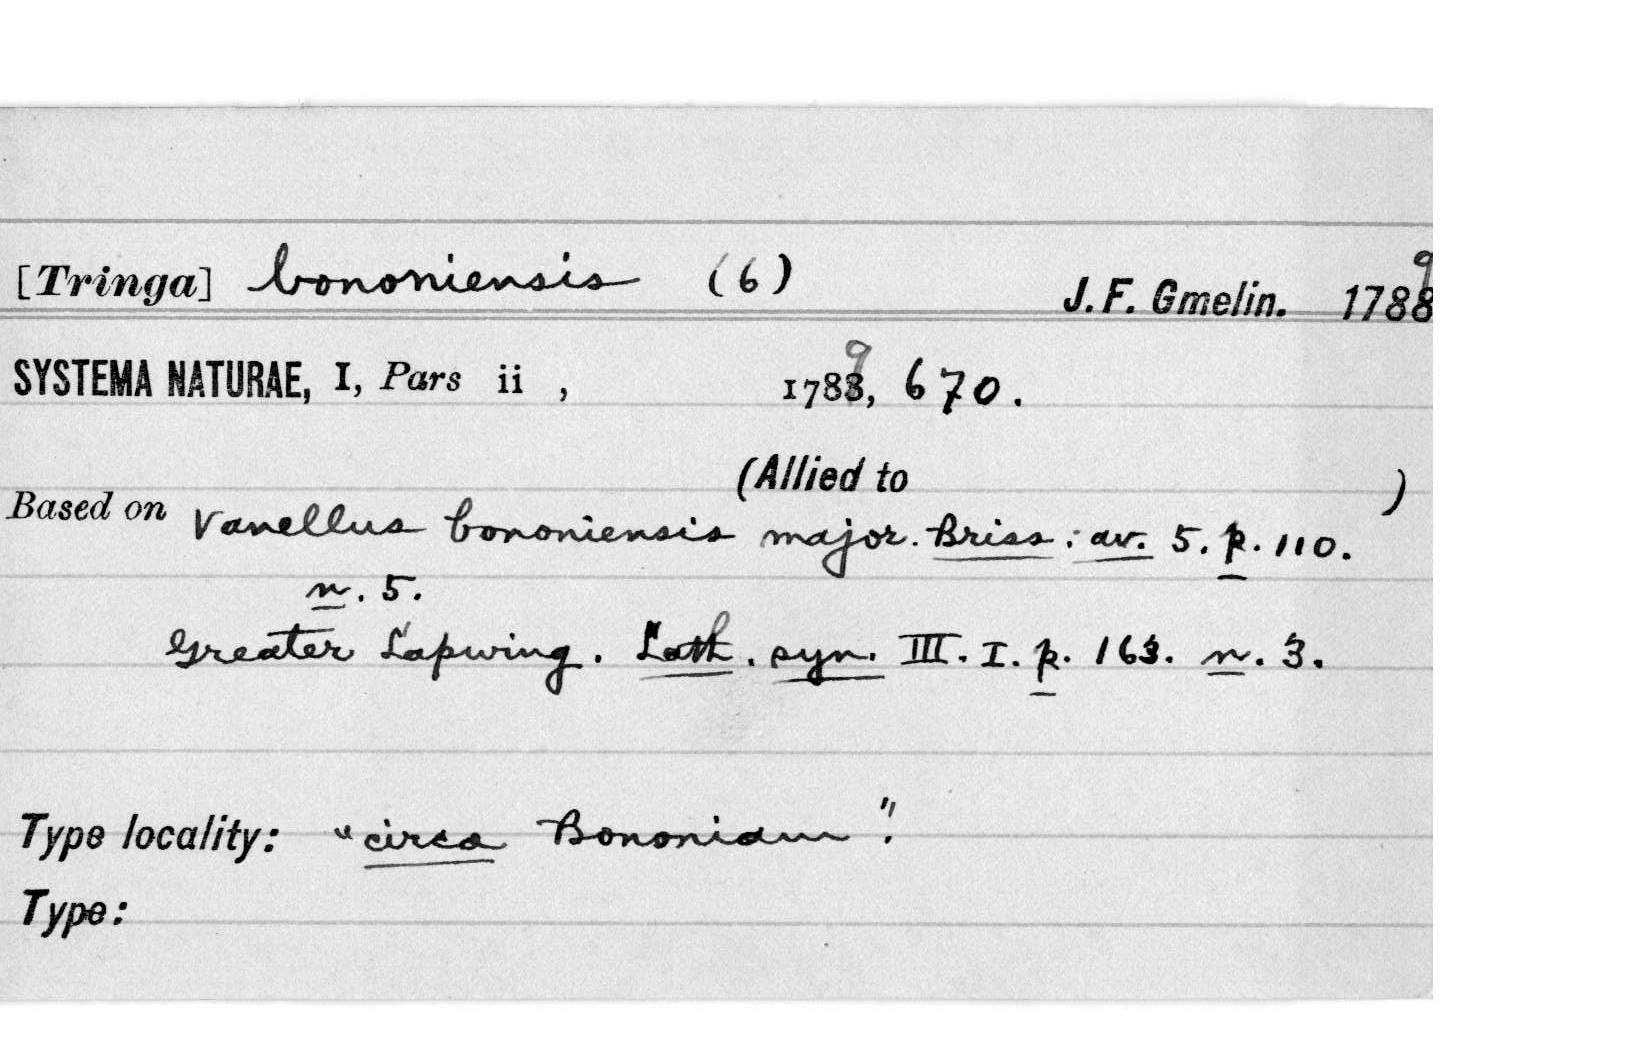 [Tringa] bononiensis (6)
J. F. Gmelin. 1788 9
SYSTEMA NATURAE, I, Pars ii , 1788 9, 670.
(Allied to )
Based on Vanellus bononiensis major. Briss. av. 5. p. 110.
n. 5.
Greater Lapwing. Lath. syn. III. I. p. 163. n. 3.
Type locality: "circa Bononiam".
Type: